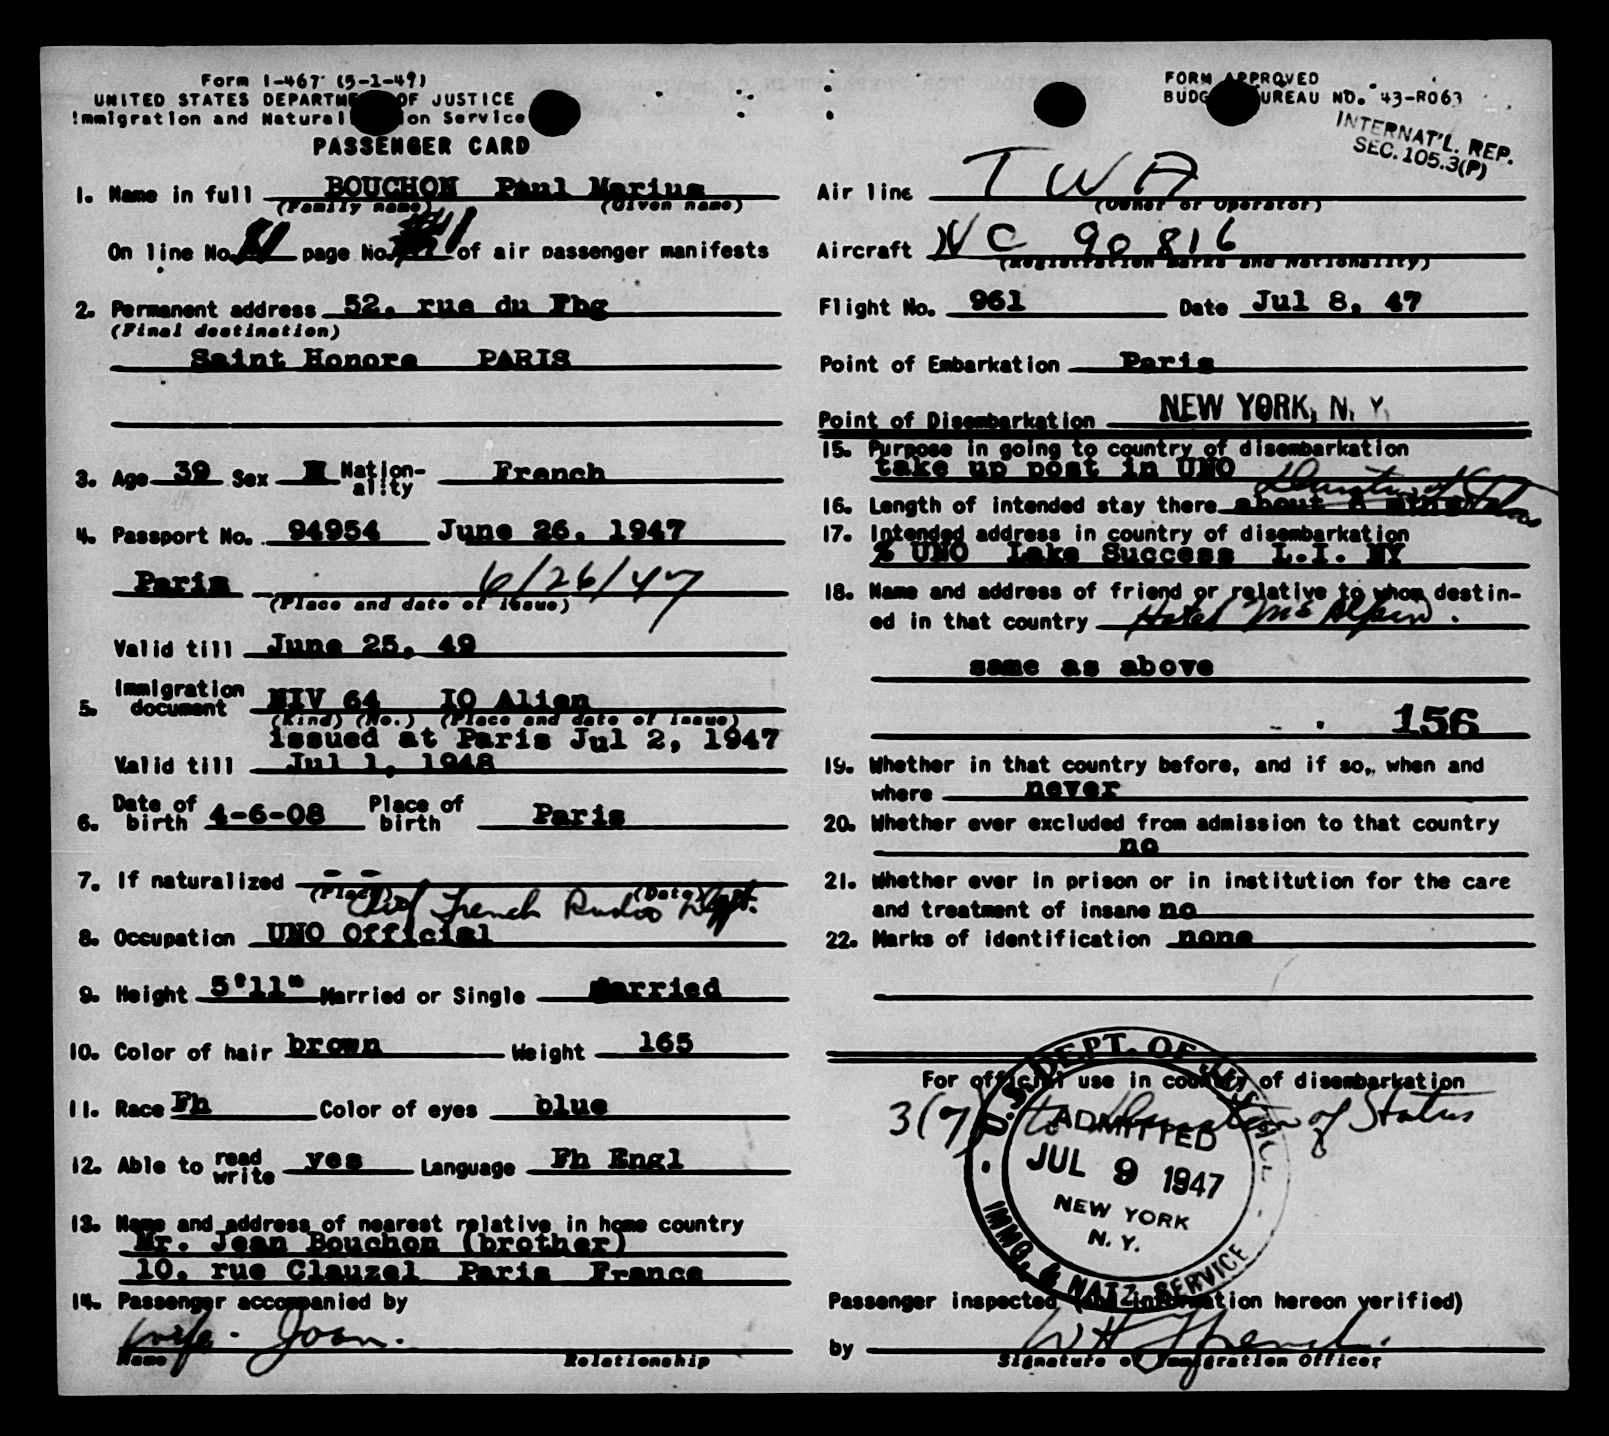 Form I-467 (5-1-47)
UNITED STATES DEPARTMENT OF JUSTICE
Immigration and Naturalization Service
PASSENGER CARD
1. Name in full BOUCHON Paul Marius
(Family name) (Given name)
On line No. page No. of air passenger manifests
2. Permanent address 52, rue du Fbg
(Final destination)
Saint Honore PARIS
3. Age 39 Sex M Nation-
ality French
4. Passport No. 94954 June 26, 1947
Paris 6/26/47
(Place and date of issue)
Valid till June 25, 49
5. Immigration document NIV 64 IO Alien
(Kind) (No.) (Place and date of issue)
issued at Paris Jul 2, 1947
Valid till Jul 1, 1948
6. Date of birth 4-6-08 Place of birth Paris
7. If naturalized - -
(Place) (Date)
Chief French Radio Dept.
8. Occupation UNO Official
9. Height 5'11" Married or Single married
10. Color of hair brown Weight 165
11. Race Fh Color of eyes blue
12. Able to read write yes Language Fh Engl
13. Name and address of nearest relative in home country
Mr. Jean Bouchon (brother)
10, rue Clauzel Paris France
14. Passenger accompanied by
wife - Joan.
Name Relationship
FORM APPROVED
BUDGET BUREAU NO. 43-R063
INTERNAT'L. REP.
SEC. 105.3(P)
Air line TWA
(Owner or Operator)
Aircraft NC 90816
(Registration marks and Nationality)
Flight No. 961 Date Jul 8, 47
Point of Embarkation Paris
Point of Disembarkation NEW YORK, N. Y.
15. Purpose in going to country of disembarkation
take up post in UNO
Duration of Status
16. Length of intended stay there about 8 mths
17. Intended address in country of disembarkation
% UNO Lake Success L.I. NY
18. Name and address of friend or relative to whom destin-
ed in that country Hotel McAlpin.
same as above
156
19. Whether in that country before, and if so, when and
where never
20. Whether ever excluded from admission to that country
no
21. Whether ever in prison or in institution for the care
and treatment of insane no
22. Marks of identification none
For official use in country of disembarkation
3(7) to Duration of Status
U.S. DEPT. OF JUSTICE
ADMITTED
JUL 9 1947
NEW YORK
N. Y.
IMMG. & NATZ. SERVICE
Passenger inspected (and information hereon verified)
by W H French.
Signature of Immigration Officer